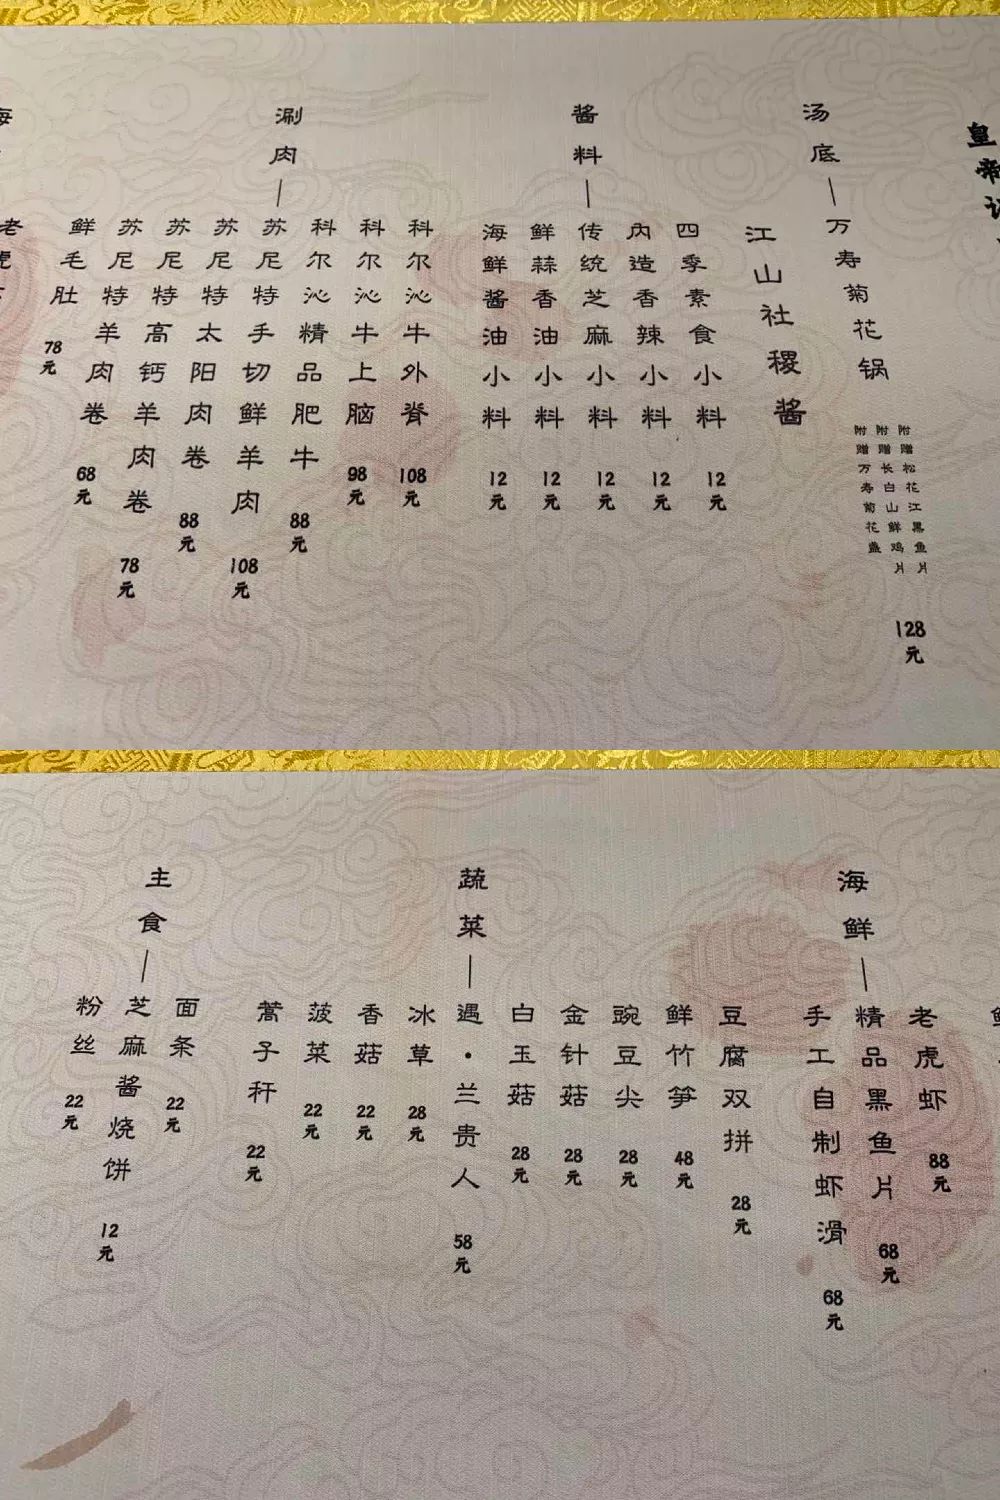 皇帝
汤底
万寿菊花锅
附赠松花江黑鱼片
附赠长白山鲜鸡片
附赠万寿菊花盏
128元
江山社稷酱
酱料
四季素食小料
12元
内造香辣小料
12元
传统芝麻小料
12元
鲜蒜香油小料
12元
海鲜酱油小料
12元
涮肉
科尔沁牛外脊
108元
科尔沁牛上脑
98元
科尔沁精品肥牛
88元
苏尼特手切鲜羊肉
108元
苏尼特太阳肉卷
88元
苏尼特高钙羊肉卷
78元
苏尼特羊肉卷
68元
鲜毛肚
78元
海
老虎
海鲜
老虎虾
88元
精品黑鱼片
68元
手工自制虾滑
68元
蔬菜
豆腐双拼
28元
鲜竹笋
48元
豌豆尖
28元
金针菇
28元
白玉菇
28元
遇·兰贵人
58元
冰草
28元
香菇
22元
菠菜
22元
蒿子秆
22元
主食
面条
22元
芝麻酱烧饼
12元
粉丝
22元